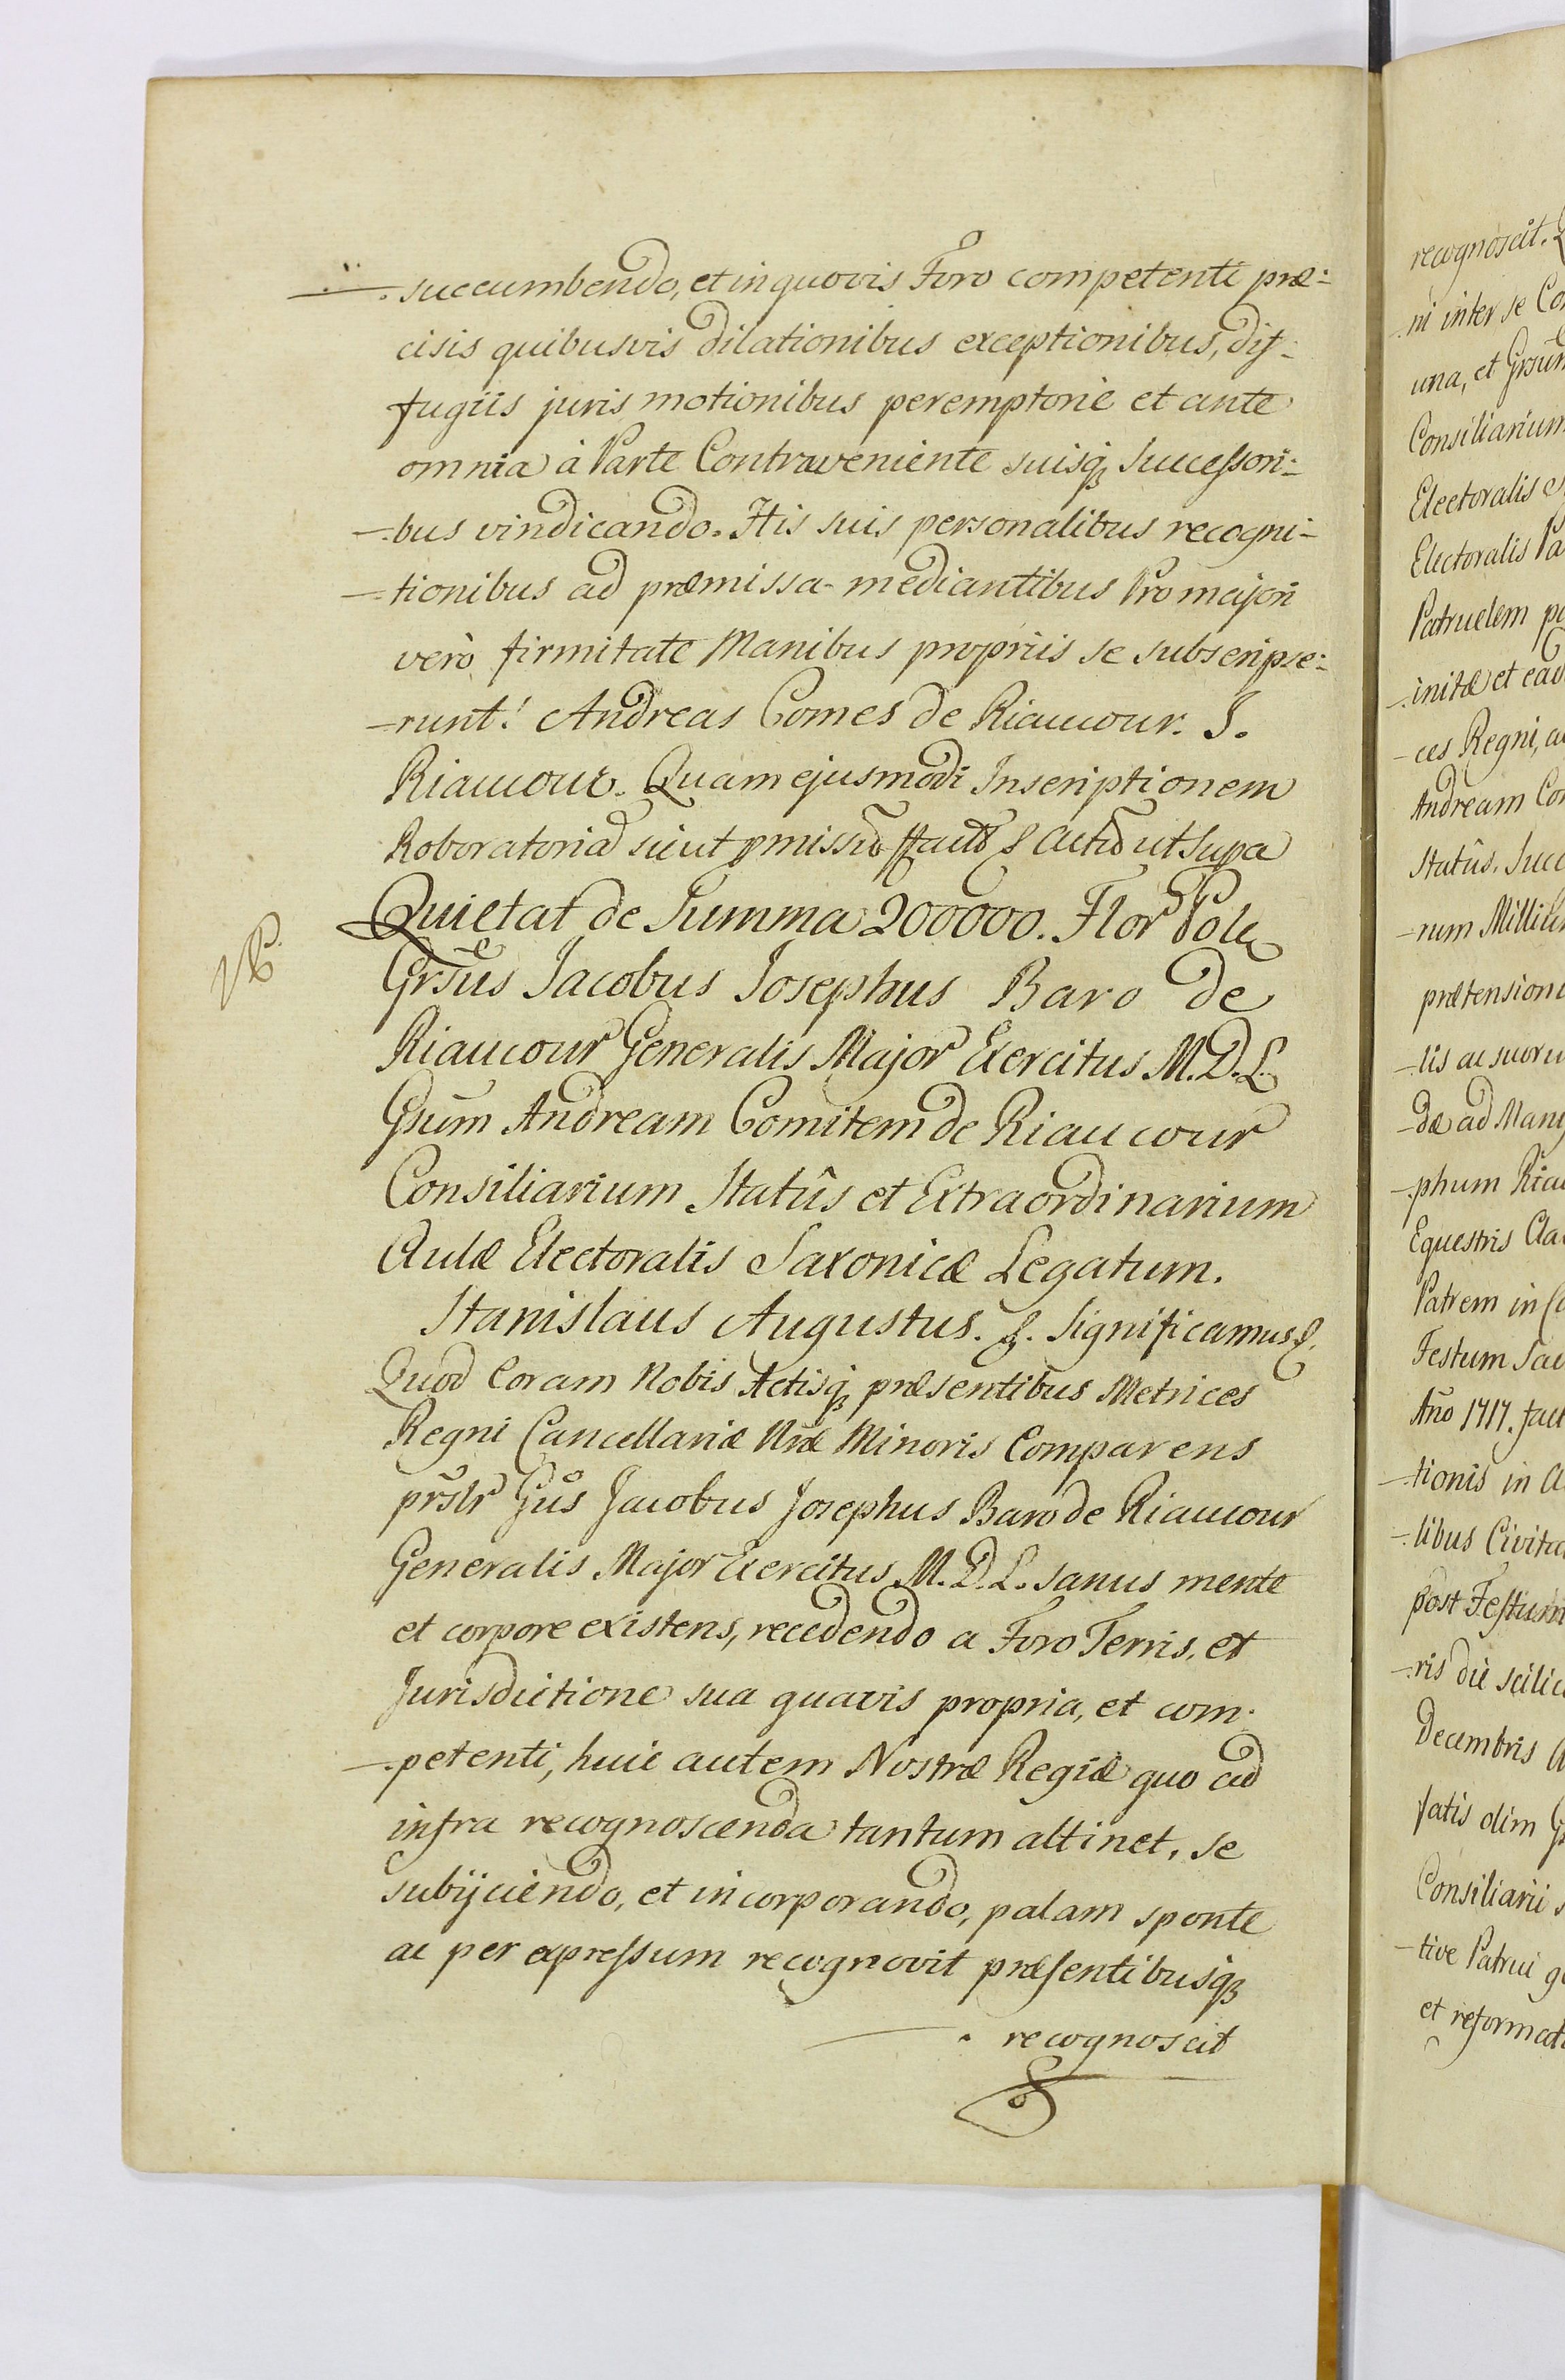 succumbendo, et in quovis Foro competenti præ-
cisis quibusvis dilationibus exceptionibus, dif-
fugiis juris motionibus peremptorie et ante
omnia à Parte Contraveniente suisq; Successori-
bus vindicando. His suis personalibus recogni-
tionibus ad præmissa mediantibus Pro majori
verò firmitate Manibus propriis se subscripse-
runt. Andreas Comes de Riaucour. J.
Riaucour. Quam ejusmodi Inscriptionem
sicut ut Supa
Quietat de Summa 200000. Flor Pol
Grsũs Jacobus Josephus Baro de
Riaucour Generalis Major Exercitus M.D.L.
Gsũm Andream Comitem de Riaucour
Consiliarium Statûs et Extraordinarium
Aulæ Electoralis Saxonicæ Legatum.
Stanislaus Augustus. &. Significamus &.
Quod Coram Nobis Actisq; præsentibus Metrices
Regni Cancellariæ Nræ Minoris Comparens
prslr Gũs Jacobus Josephus Baro de Riaucour
Generalis Major Exercitus M.D.L. sanus mente
et corpore existens, recedendo a Foro Terris. et
Jurisdictione sua quavis propria, et com-
petenti, huic autem Nostræ Regiæ quo ad
infra recognoscenda tantum attinet, se
subijciendo, et incorporando, palam sponte
ac per expressum recognovit præsentibusq;
recognoscit
recognoscit.
ni inter se
una, et Grsũm
Consiliarium
Electoralis
Electoralis
Patruelem
initæ et
ces Regni,
Andream
Statûs.
rum
prætension
lis ac
dæ ad
phum
Equestris
Patrem in
Festum
Año 1717.
tionis in
libus
post Festum
ris die
Decembris
olim
Consiliarii
tive Patrui
et